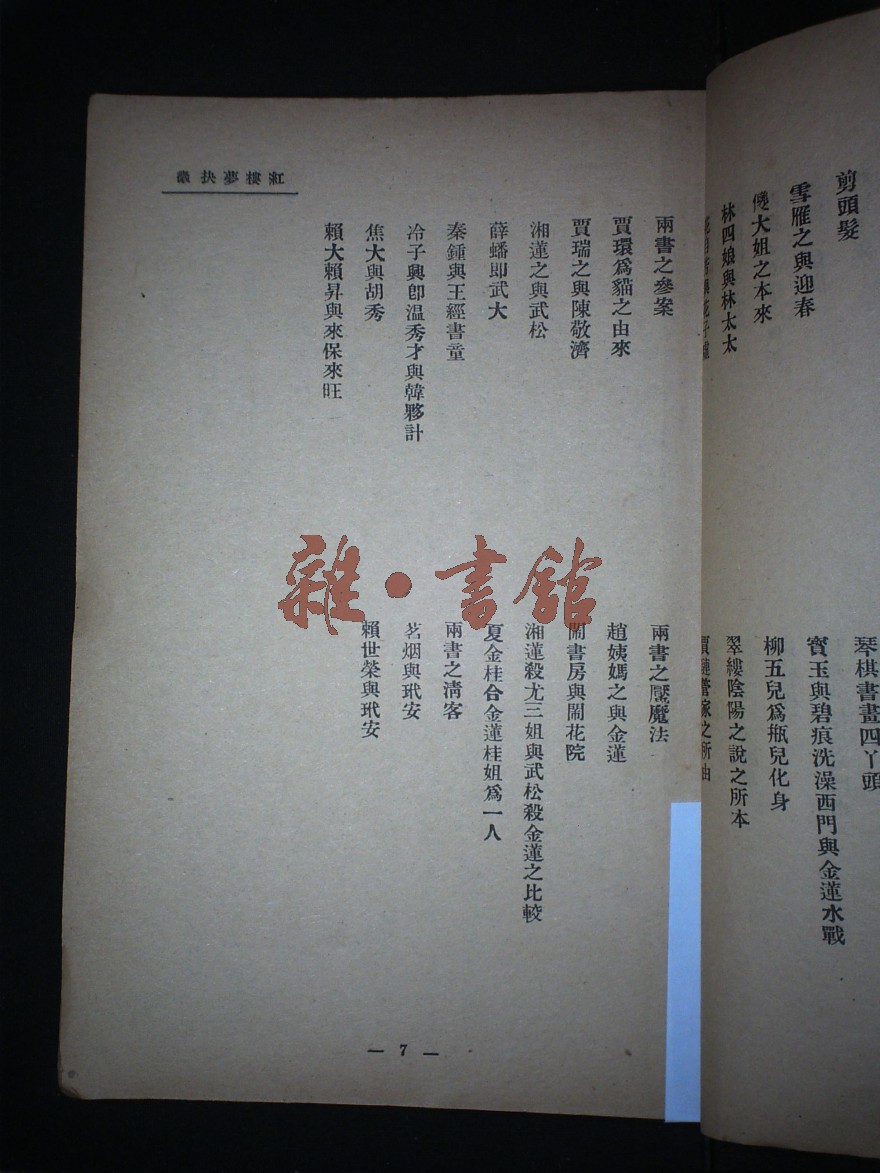 剪頭髮
琴棋書畫四丫頭
雪雁之與迎春
寶玉與碧痕洗澡西門與金蓮水戰
儍大姐之本來
柳五兒爲瓶兒化身
林四娘與林太太
翠縷陰陽之說之所本
賈璉管家之所由
紅樓夢抉微
兩書之參案
兩書之魘魔法
賈環爲貓之由來
趙姨媽之與金蓮
賈瑞之與陳敬濟
鬧書房與鬧花院
湘蓮之與武松
湘蓮殺尤三姐與武松殺金蓮之比較
薛蟠即武大
夏金桂合金蓮桂姐爲一人
秦鍾與王經書童
兩書之清客
冷子興卽溫秀才與韓夥計
茗烟與玳安
焦大與胡秀
賴世榮與玳安
賴大賴昇與來保來旺
雜·書館
— 7 —